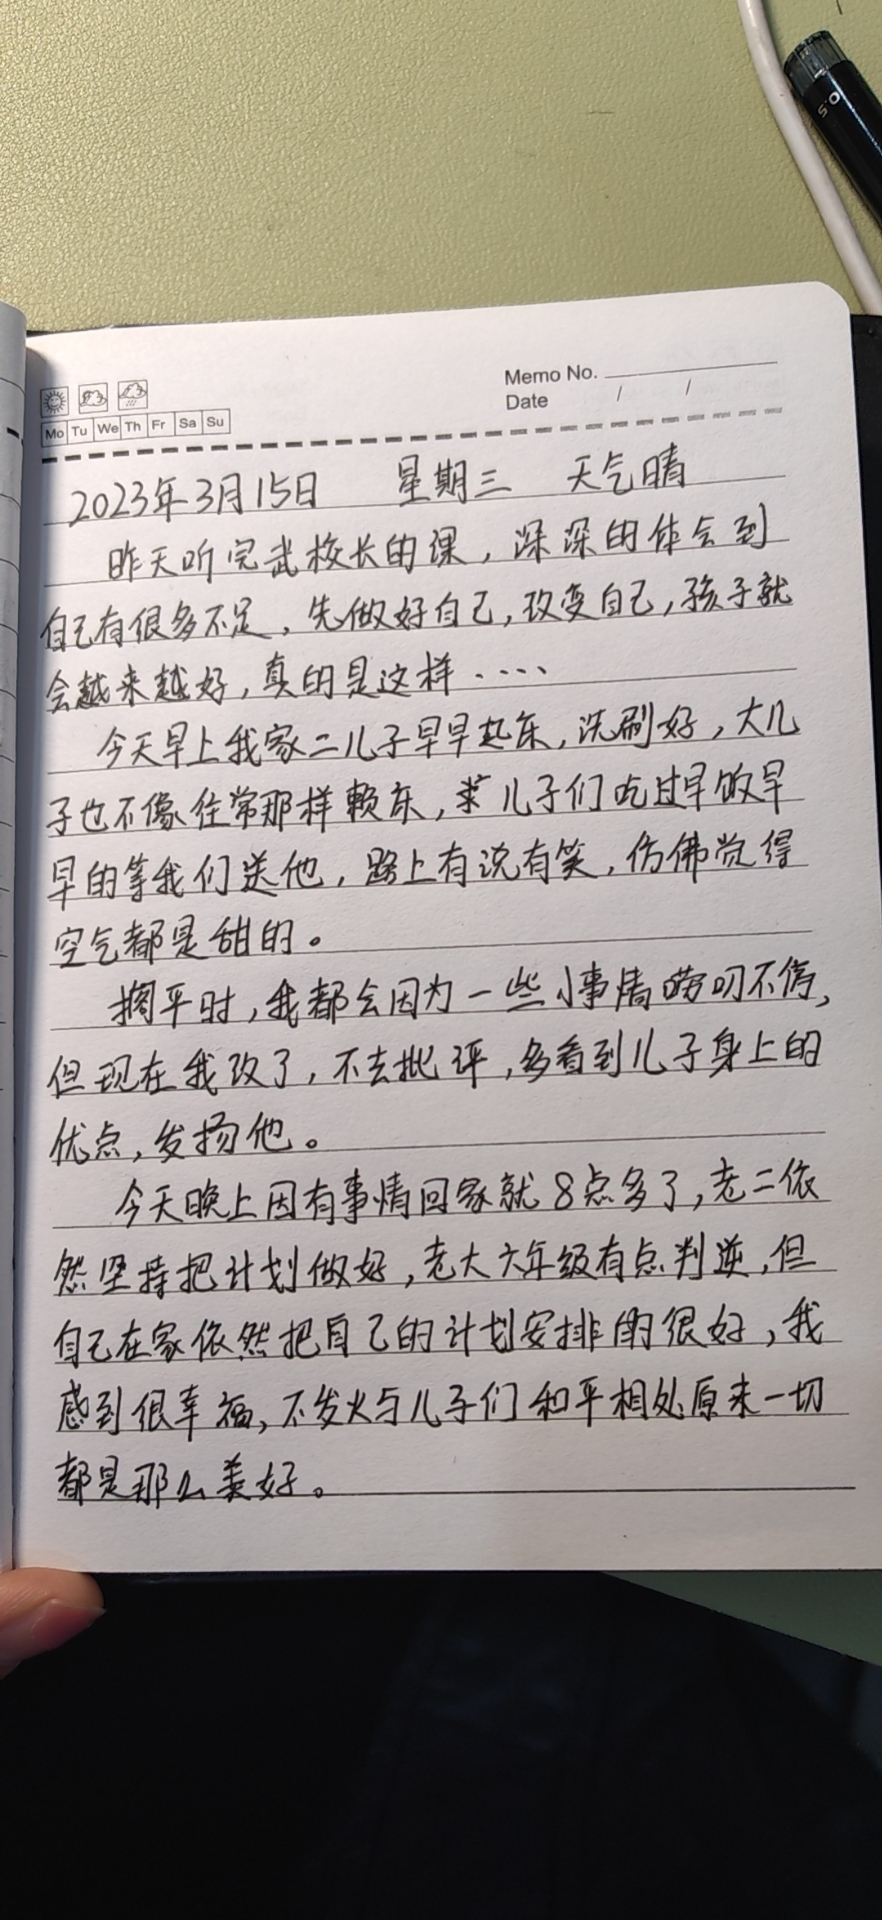 0.5
Memo No.
Date / /
Mo Tu We Th Fr Sa Su
2023年3月15日 星期三 天气晴
昨天听完武校长的课，深深的体会到
自己有很多不足，先做好自己，改变自己，孩子就
会越来越好，真的是这样....
今天早上我家二儿子早早起床，洗刷好，大儿
子也不像往常那样赖床，儿子们吃过早饭早
早的等我们送他，路上有说有笑，仿佛觉得
空气都是甜的。
搁平时，我都会因为一些小事情唠叨不停，
但现在我改了，不去批评，多看到儿子身上的
优点，发扬他。
今天晚上因有事情回家就8点多了，老二依
然坚持把计划做好，老大六年级有点判逆，但
自己在家依然把自己的计划安排的很好，我
感到很幸福，不发火与儿子们和平相处原来一切
都是那么美好。